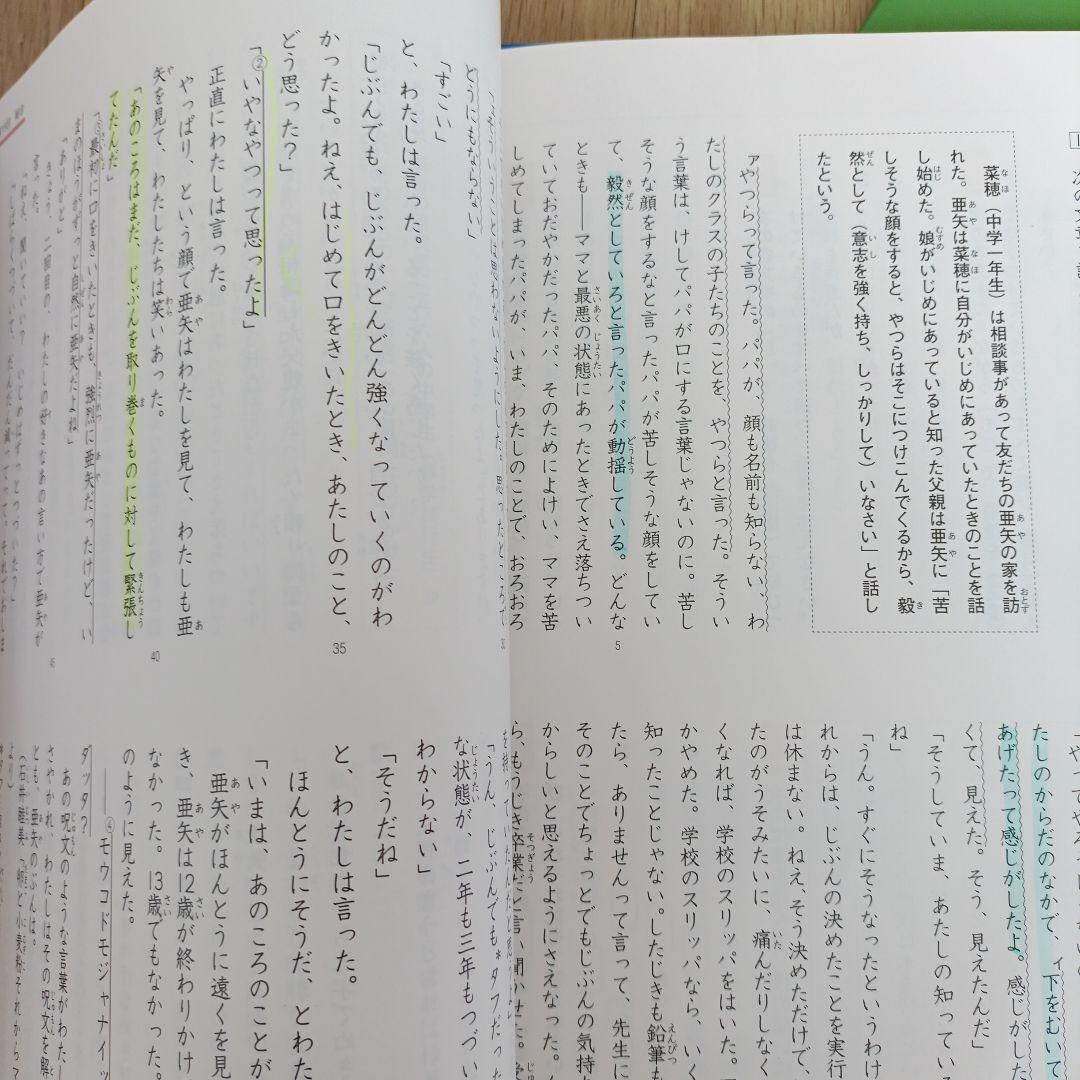 次の文章
菜穂（中学一年生）は相談事があって友だちの亜矢の家を訪
れた。亜矢は菜穂に自分がいじめにあっていたときのことを話
し始めた。娘がいじめにあっていると知った父親は亜矢に「苦
しそうな顔をすると、やつらはそこにつけこんでくるから、毅
然として（意志を強く持ち、しっかりして）いなさい」と話し
たという。
ァやつらって言った。パパが、顔も名前も知らない、わ
たしのクラスの子たちのことを、やつらと言った。そうい
う言葉は、けしてパパが口にする言葉じゃないのに。苦し
そうな顔をするなと言ったパパが苦しそうな顔をしてい
て、毅然としていろと言ったパパが動揺している。どんな
ときも――ママと最悪の状態にあったときでさえ落ちつい
ていておだやかだったパパ、そのためによけい、ママを苦
しめてしまったパパが、いま、わたしのことで、おろおろ
5
たしのからだのなかで、ィ下をむいて
あげたって感じがしたよ。感じがした
くて、見えた。そう、見えたんだ」
「そうしていま、あたしの知っている
ね」
「うん。すぐにそうなったというわけ
れからは、じぶんの決めたことを実行
は休まない。ねえ、そう決めただけで、
たのがうそみたいに、痛んだりしなく
くなれば、学校のスリッパをはいた。
かやめた。学校のスリッパなら、いく
知ったことじゃない。したじきも鉛筆も
たら、ありませんって言って、先生に
そのことでちょっとでもじぶんの気持
からしいと思えるようにさえなった。
ら、もうじき卒業だと言い聞かせた。
どうにもならない」
「すごい」
と、わたしは言った。
「じぶんでも、じぶんがどんどん強くなっていくのがわ
かったよ。ねえ、はじめて口をきいたとき、あたしのこと、
どう思った？」
「②いやなやつって思ったよ」
正直にわたしは言った。
やっぱり、という顔で亜矢はわたしを見て、わたしも亜
矢を見て、わたしたちは笑いあった。
「あのころはまだ、じぶんを取り巻くものに対して緊張し
てたんだ」
「③最初に口をきいたときも、強烈に亜矢だったけど、い
まのほうがずっと自然に亜矢だよね」
「ありがと」
きょう、二回目の、わたしの好きなあの言い方で亜矢が
言った。
35
40
45
「うん、じぶんでも＊タフだった
な状態が、二年も三年もつづい
わからない」
「そうだね」
と、わたしは言った。
ほんとうにそうだ、とわた
「いまは、あのころのことが
亜矢がほんとうに遠くを見
き、亜矢は12歳が終わりかけ
なかった。13歳でもなかった。
のように見えた。
――④モウコドモジャナイッ
ダッタ？
あの呪文のような言葉がわたし
さやかれ、わたしはその呪文を解
とも、亜矢のぶんは。
（石井睦美「卵と小麦粉それからマ
より）